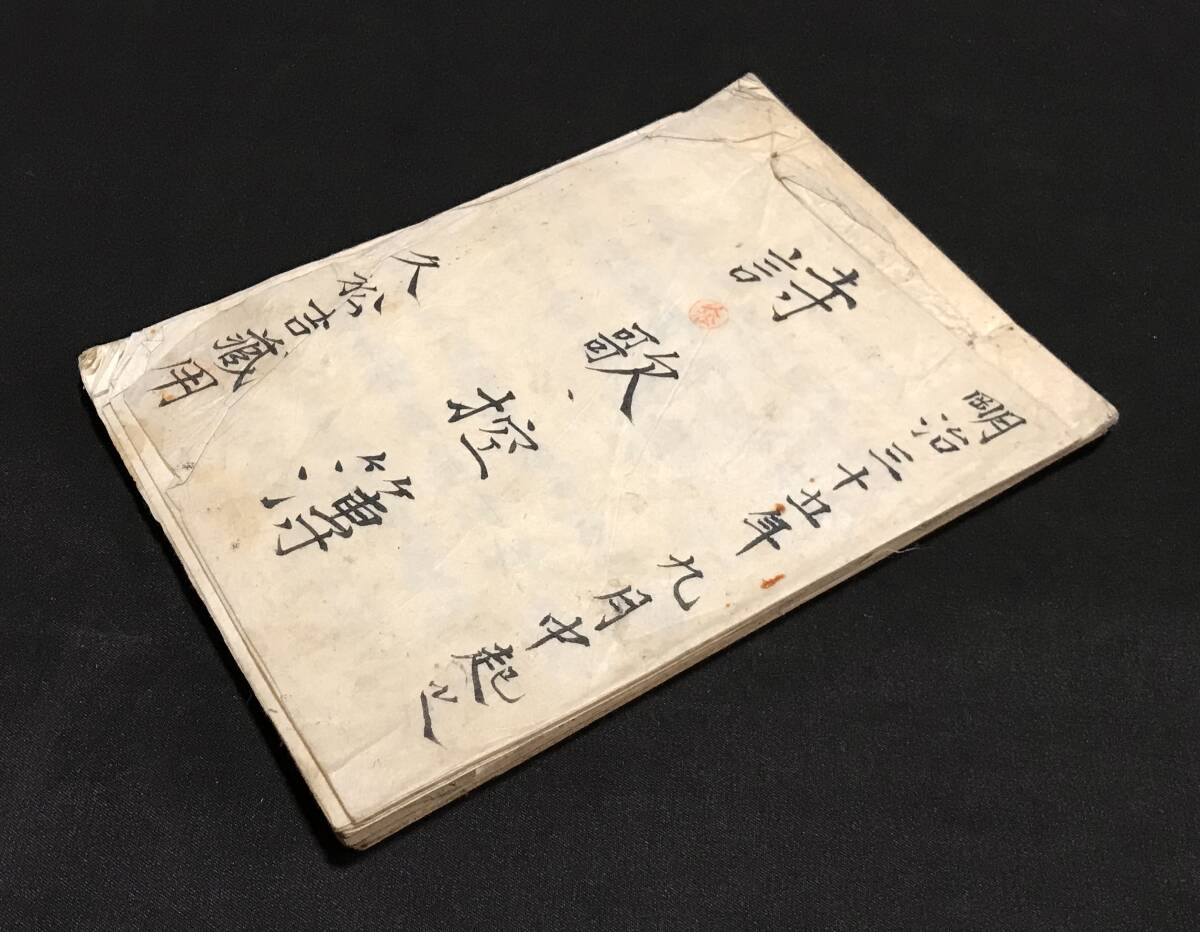 明治三十五年九月中起之
詩歌控簿
久松吉藏用